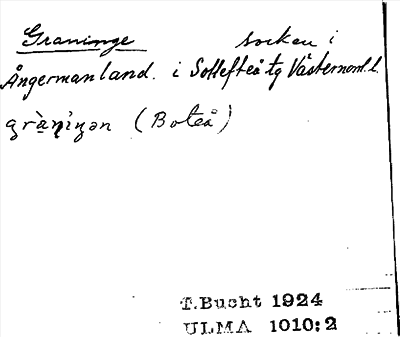 Graninge socken i
Ångermanland. i Sollefteå tg Västernorrl. l.
gràni̇̀ŋən (Boteå)
T.Bucht 1924
ULMA 1010:2